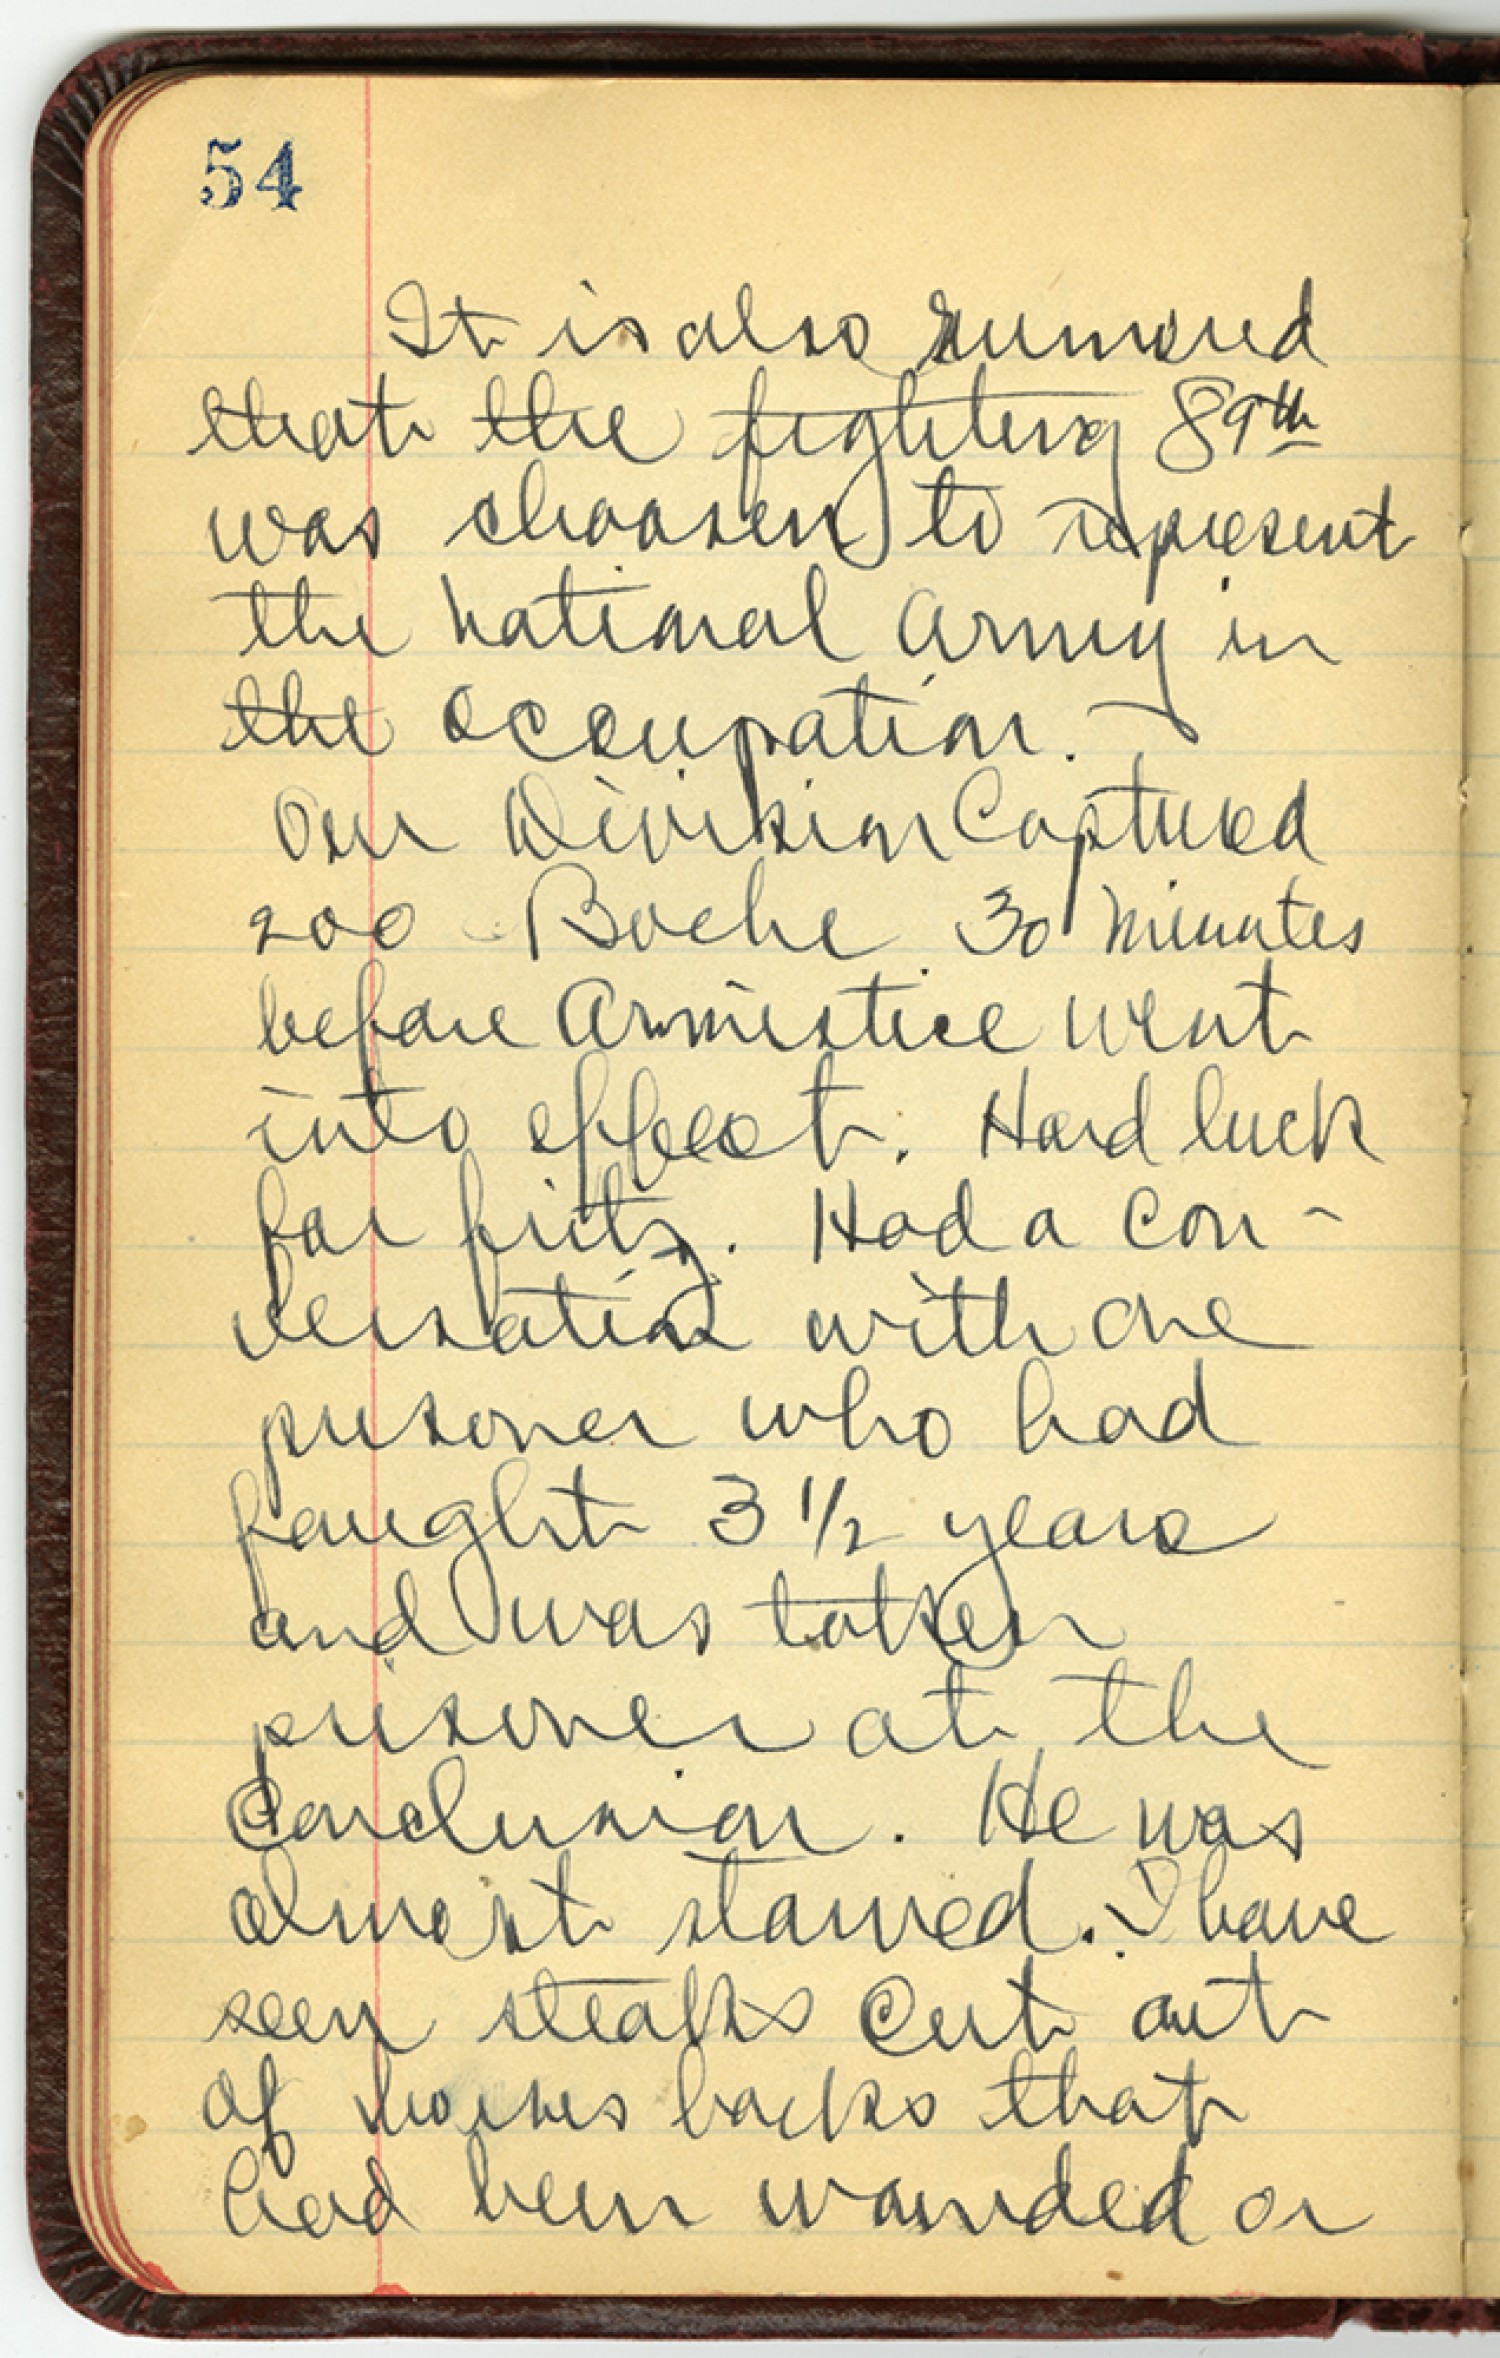 54
It is also rumored
that the fighting 89th
was choosen to represent
the National Army in
the occupation.
Our Division Captured
200 Boche 30 Minutes
before Armistice went
into effect. Hard luck
for fritz. Had a con-
versation with one
prisoner who had
fought 3 1/2 years
and was taken
prisoner at the
Conclusion. He was
almost starved. I have
seen steaks cut out
of horses backs that
had been wounded or